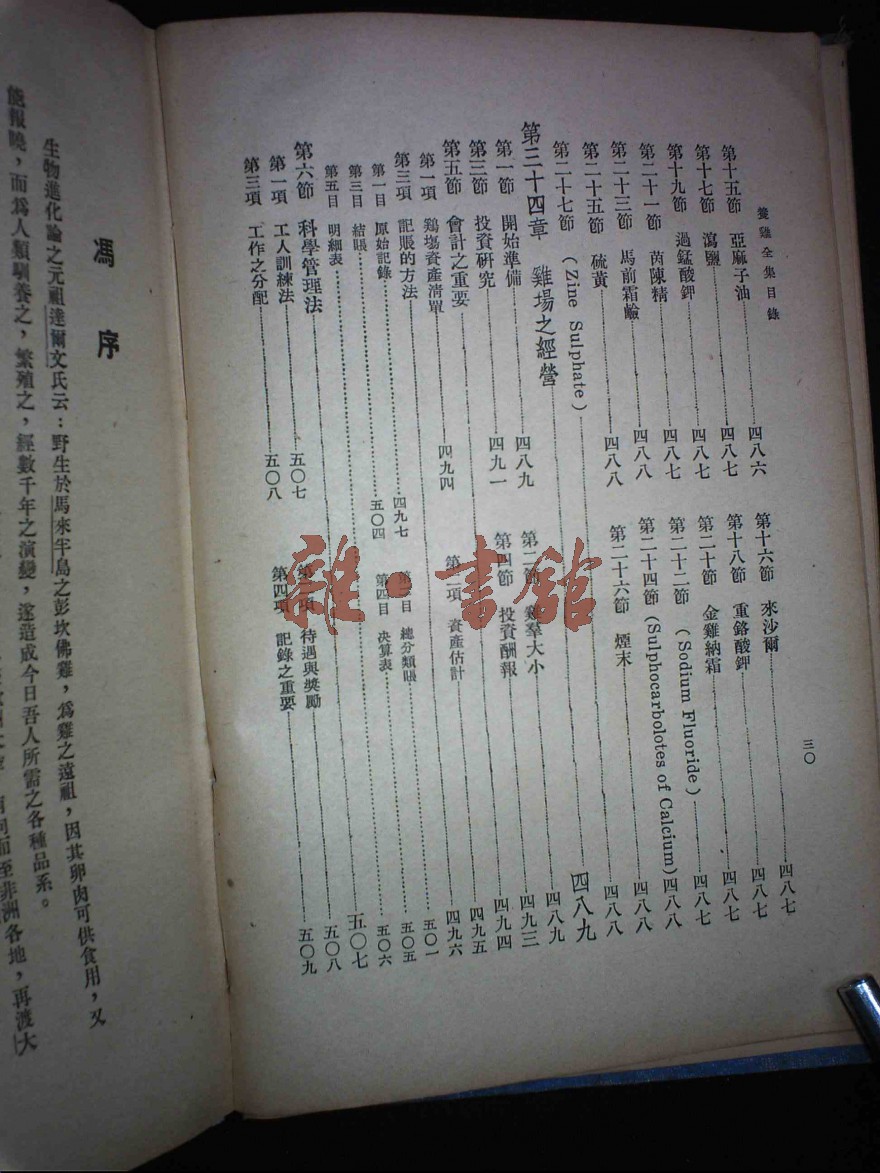 養雞全集目錄
三〇
第十五節 亞麻子油 四八六
第十六節 來沙爾 四八七
第十七節 瀉鹽 四八七
第十八節 重鉻酸鉀 四八七
第十九節 過錳酸鉀 四八七
第二十節 金雞納霜 四八七
第二十一節 茵陳精 四八七
第二十二節 (Sodium Fluoride) 四八七
第二十三節 馬前霜鹼 四八八
第二十四節 (Sulphocarbolotes of Calcium) 四八八
第二十五節 硫黃 四八八
第二十六節 煙末 四八八
第二十七節 (Zine Sulphate) 四八八
第三十四章 雞場之經營 四八九
第一節 開始準備 四八九
第二節 雞羣大小 四八九
第三節 投資研究 四九一
第四節 投資酬報 四九三
第五節 會計之重要 四九四
第一項 鷄塲資產清單 四九四
第二項 資產估計 四九五
第三項 記賬的方法 四九六
第一目 原始記錄 四九七
第二目 總分類賬 五〇一
第三目 結賬 五〇四
第四目 決算表 五〇五
第五目 明細表 五〇六
第六節 科學管理法 五〇七
第一項 工人訓練法 五〇七
第二項 待遇與獎勵 五〇八
第三項 工作之分配 五〇八
第四項 記錄之重要 五〇九
雜·書館
馮序
生物進化論之元祖達爾文氏云：野生於馬來半島之彭坎佛雞，爲雞之遠祖，因其卵肉可供食用，又
能報曉，而爲人類馴養之，繁殖之，經數千年之演變，遂造成今日吾人所需之各種品系。
而至非洲各地，再渡大